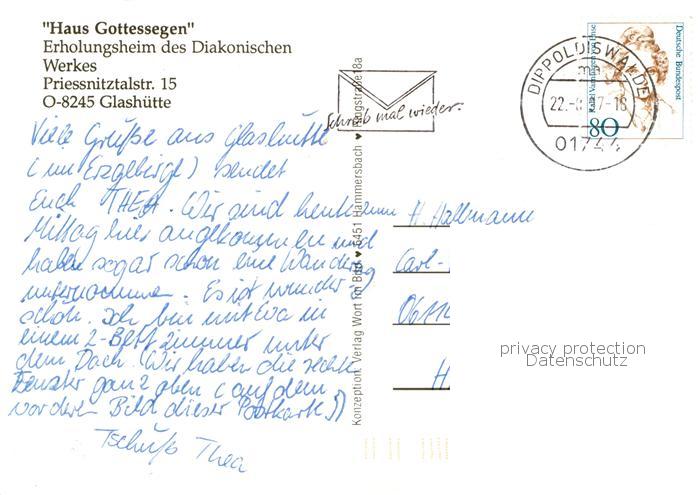 "Haus Gottessegen"
Erholungsheim des Diakonischen
Werkes
Priessnitztalstr. 15
O-8245 Glashütte
Viele Grüße aus Glashütte
(im Erzgebirge) sendet
Euch THEA. Wir sind heute
Mittag hier angekommen und
haben sogar schon eine Wanderung
unternommen. Es ist wunder-
schön. Ich bin mit Eva in
einem 2-Bett zimmer unter
dem Dach. Wir haben die rechte
Fenster ganz oben (auf dem
vorderen Bild dieser Postkarte))
Tschüß Thea
Konzeption: Verlag Wort im Bild ♥ 6451 Hammersbach ♥
Schreib mal wieder.
DIPPOLDISWALDE
mn
22.-8. 97-18
01744
Deutsche Bundespost
80
H. Hallmann
Carl-
0611
H
privacy protection
Datenschutz